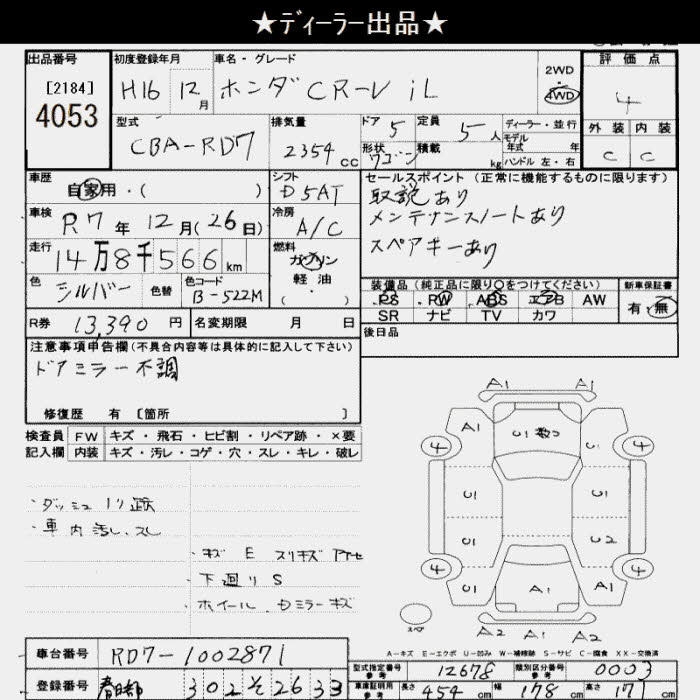 ★ディーラー出品★
出品番号 初度登録年月 車名・グレード 評価点
[2184] H16 12月 ホンダCR-V iL 2WD・4WD 4
4053
型式 排気量 ドア 5 定員 5人 ディーラー・並行 外装 内装
CBA-RD7 2354cc 形状 ワゴン 積載 kg モデル年式 年式 ハンドル 左・右 C C
車歴 シフト セールスポイント (正常に機能するものに限ります)
自家用・( ) D5AT 取説あり
車検 R7年12月(26日) 冷房 A/C メンテナンスノートあり
走行 14万8千566km 燃料 ガソリン 軽油 ( ・ ) スペアキーあり
色 シルバー 色替 色コード B-522M 装備品(純正品に限り○をつけてください) 新車保証書
PS PW ABS エアB AW 有・無
SR ナビ TV カワ
R券 13,390円 名変期限 月 日 後日品
注意事項申告欄(不具合内容等は具体的に記入して下さい)
ドアミラー不調
修復歴 有 [箇所 ]
検査員 FW キズ・飛石・ヒビ割・リペア跡・×要
記入欄 内装 キズ・汚レ・コゲ・穴・スレ・キレ・破レ
A1 A1
A1 U1数コ U1
4 4
U1 U1
U1 U2
4 4
U1 A1 A1
スペア A2 A2 A1
・ダッシュノリ跡
・車内汚レ、スレ
・キズ E スリキズ
・下廻りS
・ホイール、Dミラーキズ
A-キズ E-エクボ U-凹み W-補修跡 S-サビ C-腐食 XX-交換済
車台番号 RD7-1002871 型式指定番号 参考 12678 類別区分番号 参考 0003
登録番号 春日部 302 26 33 車庫証明用 参考 長さ 454cm 幅 178cm 高さ 171